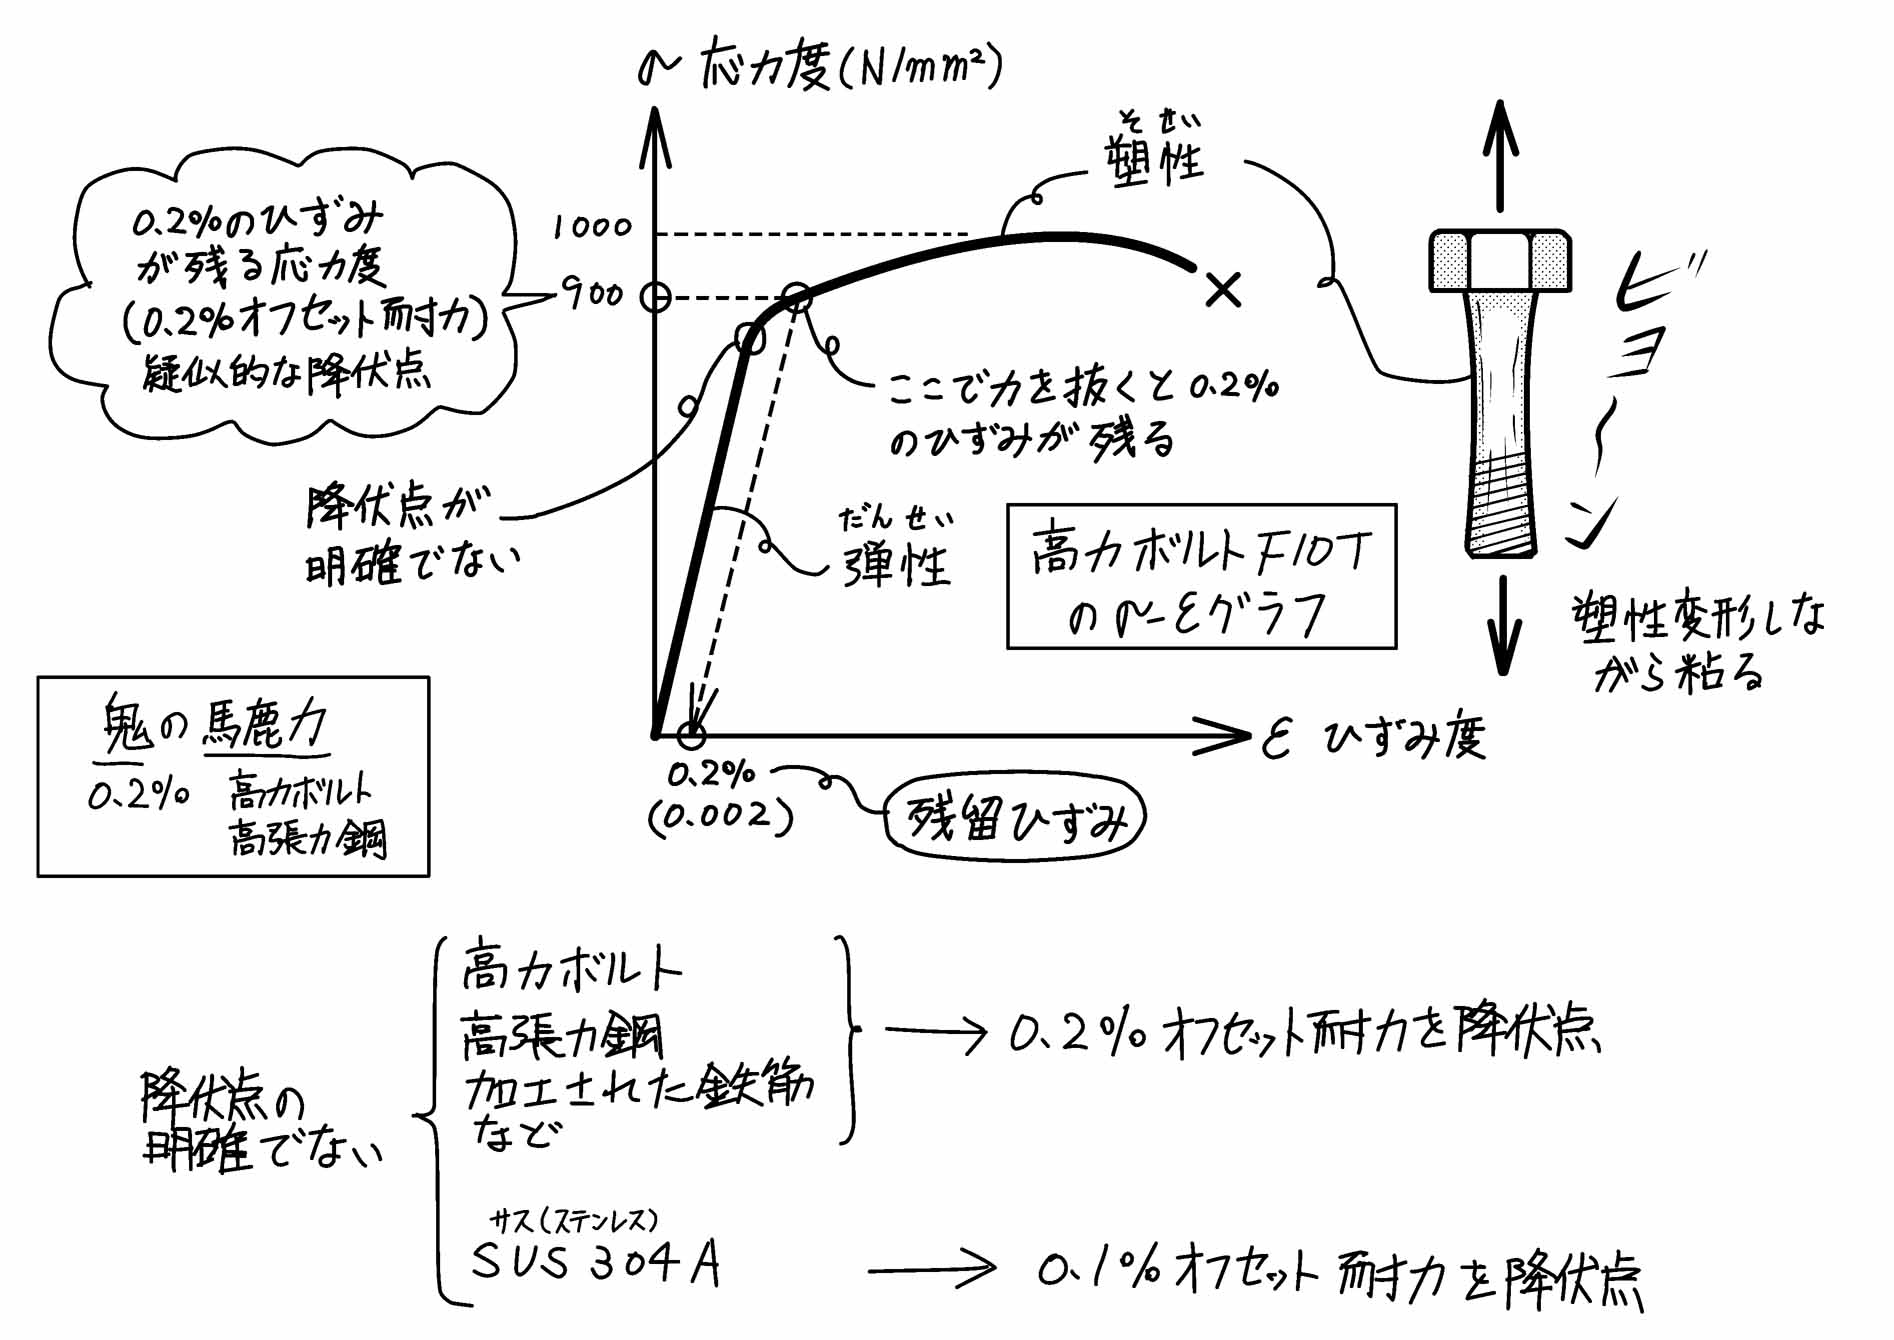 σ 応力度(N/mm²)
そせい
塑性
0.2%のひずみ
が残る応力度
(0.2%オフセット耐力)
疑似的な降伏点
1000
900
ここで力を抜くと0.2%
のひずみが残る
降伏点が
明確でない
だんせい
弾性
高力ボルトF10T
のσ-εグラフ
ビヨーン
塑性変形しな
がら粘る
鬼の馬鹿力
0.2% 高力ボルト
高張力鋼
ε ひずみ度
0.2%
(0.002)
残留ひずみ
降伏点の
明確でない
高力ボルト
高張力鋼
加工された鉄筋
など
0.2%オフセット耐力を降伏点
サス(ステンレス)
SUS304A
0.1%オフセット耐力を降伏点